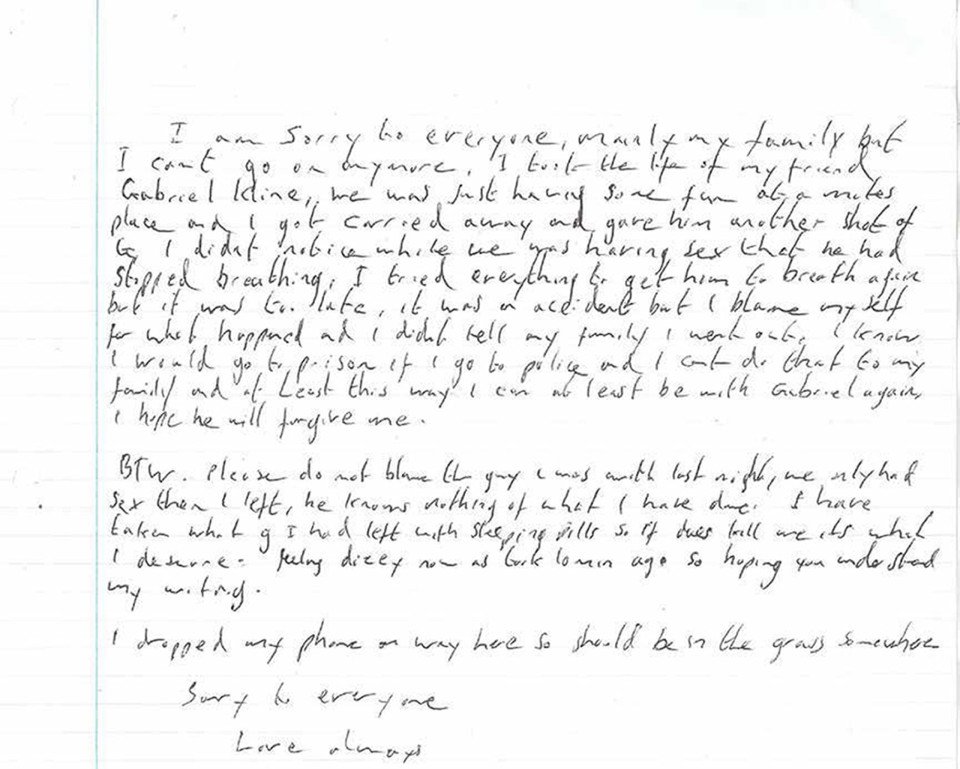 I am sorry to everyone, mainly my family but
I cant go on anymore, I took the life of my friend
Gabriel Kline, we was just having some fun at a mates
place and I got carried away and gave him another shot of
G, I didnt notice while we was having sex that he had
stopped breathing, I tried everything to get him to breath again
but it was to late, it was an accident but I blame my self
for what happened and I didnt tell my family I went out, I know
I would go to prison if I go to police and I cant do that to my
family and at Least this way I can at least be with Gabriel again,
I hope he will forgive me.
BTW. Please do not blame the guy I was with last night, we only had
sex then I left, he knows nothing of what I have done. I have
taken what g I had left with sleeping pills so if it does kill me its what
I deserve. Feeling dizzy now as took 10 min ago so hoping you understand
my writing.
I dropped my phone on way here so should be in the grass somewhere
Sorry to everyone
Love always